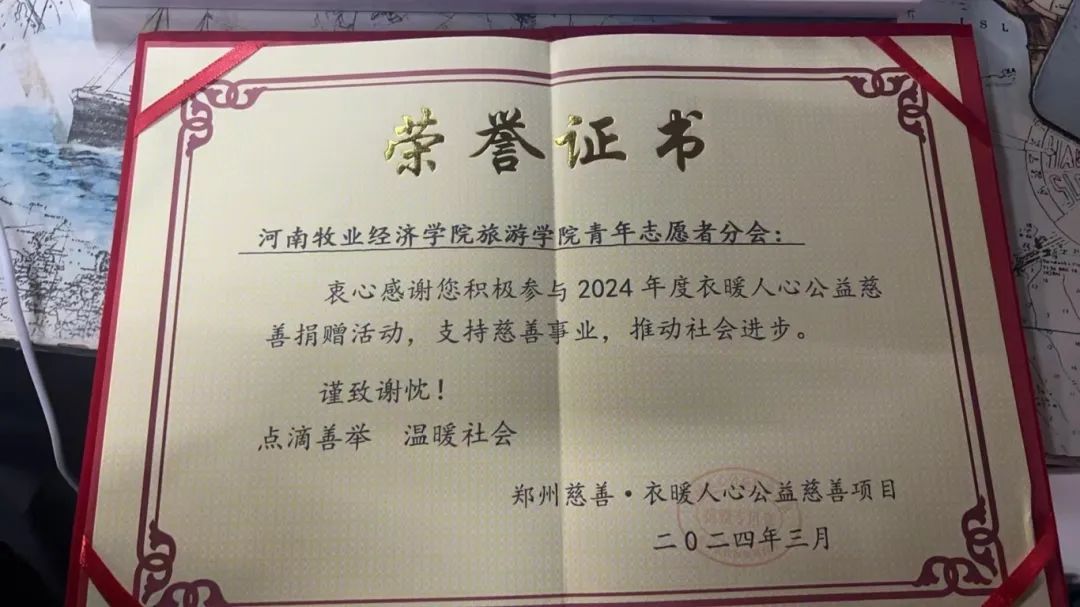 荣誉证书
河南牧业经济学院旅游学院青年志愿者分会：
衷心感谢您积极参与2024年度衣暖人心公益慈
善捐赠活动，支持慈善事业，推动社会进步。
谨致谢忱！
点滴善举 温暖社会
郑州慈善·衣暖人心公益慈善项目
二0二四年三月